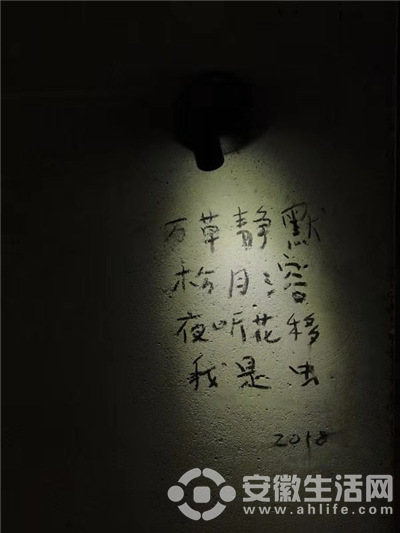 万草静默
松月溶
夜听花移
我是虫
2018
安徽生活网
www.ahlife.com